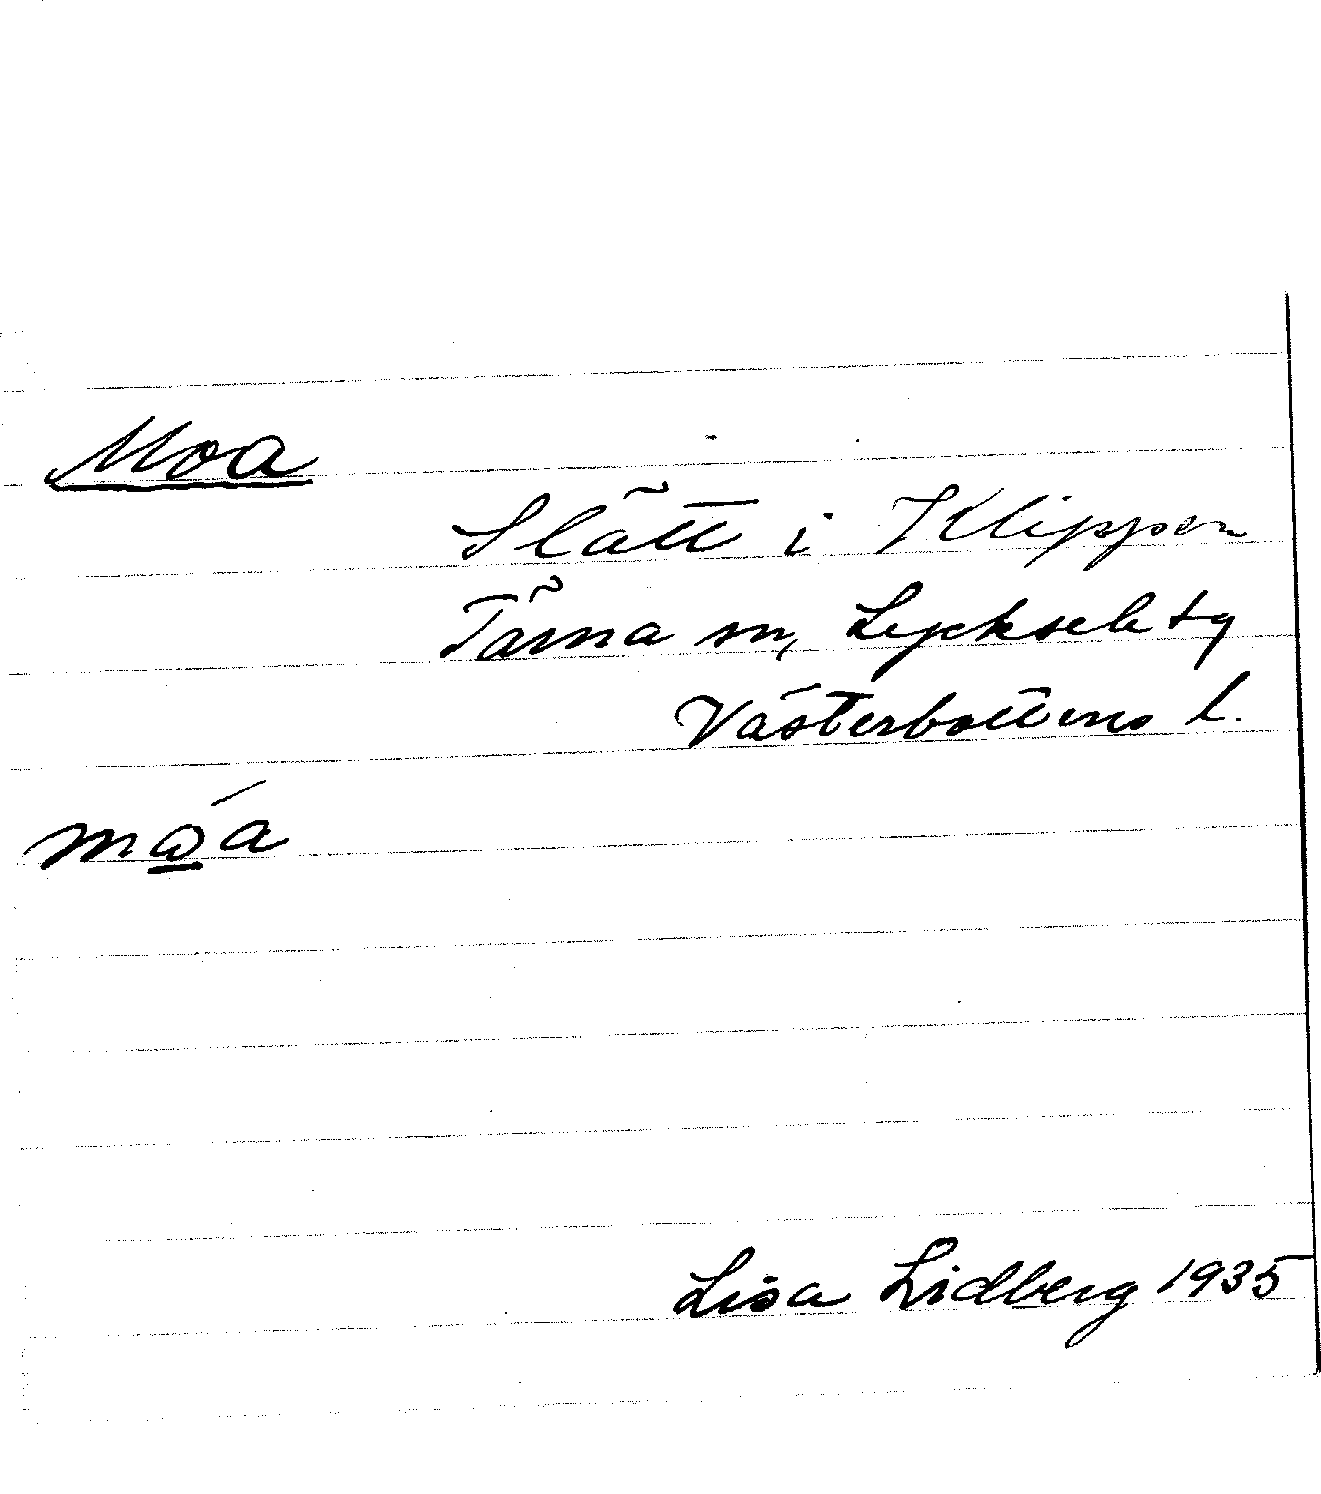 Moa
Slått i Klippen
Tärna sn, Lycksele tg
Västerbottens l.
mώ̲a
Lisa Lidberg 1935